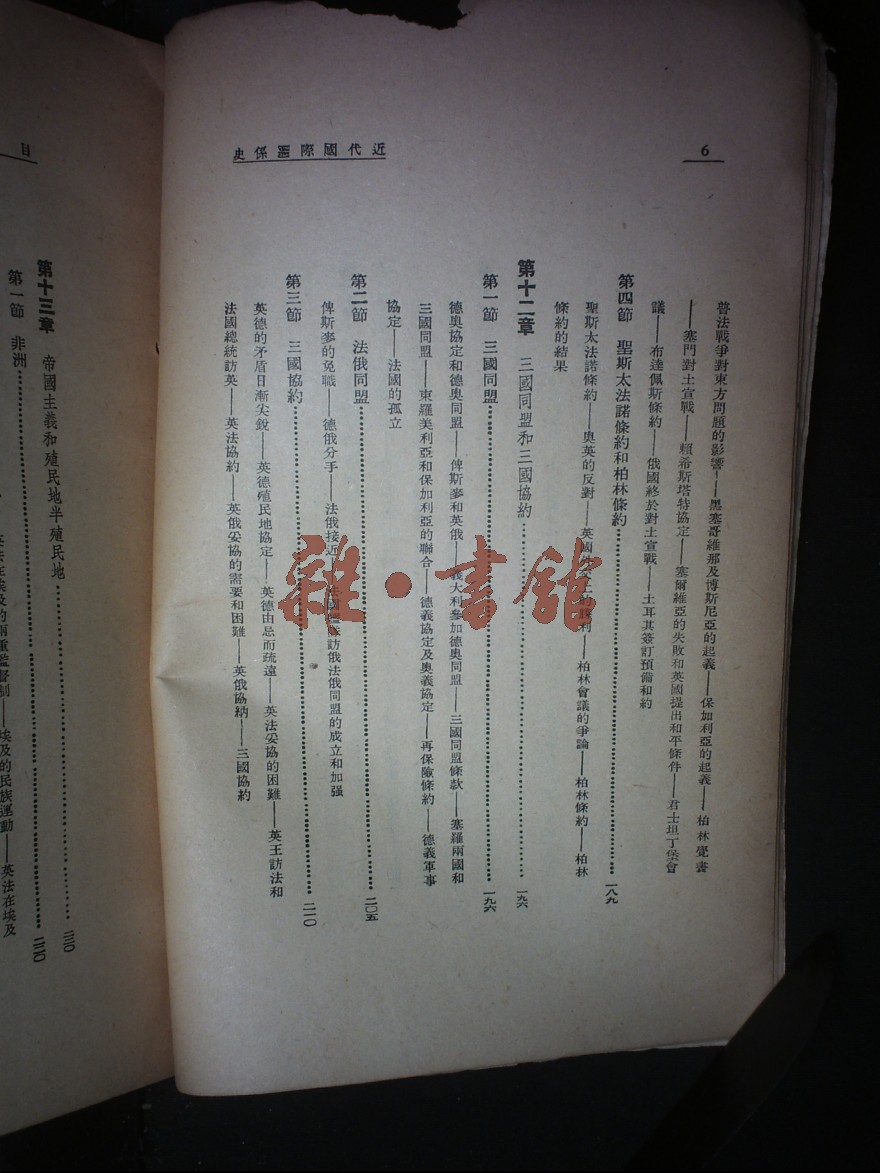 近代國際關係史
6
普法戰爭對東方問題的影響——黑塞哥維那及博斯尼亞的起義——保加利亞的起義——柏林覺書
——塞門對土宣戰——賴希斯塔特協定——塞爾維亞的失敗和英國提出和平條件——君士坦丁堡會
議——布達佩斯條約——俄國終於對土宣戰——土耳其簽訂預備和約
第四節 聖斯太法諾條約和柏林條約 一八九
聖斯太法諾條約——奧英的反對——英國外交上的勝利——柏林會議的爭論——柏林條約——柏林
條約的結果
第十二章 三國同盟和三國協約 一九六
第一節 三國同盟 一九六
德奧協定和德奧同盟——俾斯麥和英俄——義大利參加德奧同盟——三國同盟條款——塞羅兩國和
三國同盟——東羅美利亞和保加利亞的聯合——德義協定及奧義協定——再保險條約——德義軍事
協定——法國的孤立
第二節 法俄同盟 二〇五
俾斯麥的免職——德俄分手——法俄接近——法國艦隊訪俄法俄同盟的成立和加强
第三節 三國協約 二一〇
英德的矛盾日漸尖銳——英德殖民地協定——英德由忌而疏遠——英法妥協的困難——英王訪法和
法國總統訪英——英法協約——英俄妥協的需要和困難——英俄協約——三國協約
目
第十三章 帝國主義和殖民地半殖民地 二二〇
第一節 非洲 二二〇
英法在埃及的兩重監督制——埃及的民族運動——英法在埃及
雜·書館